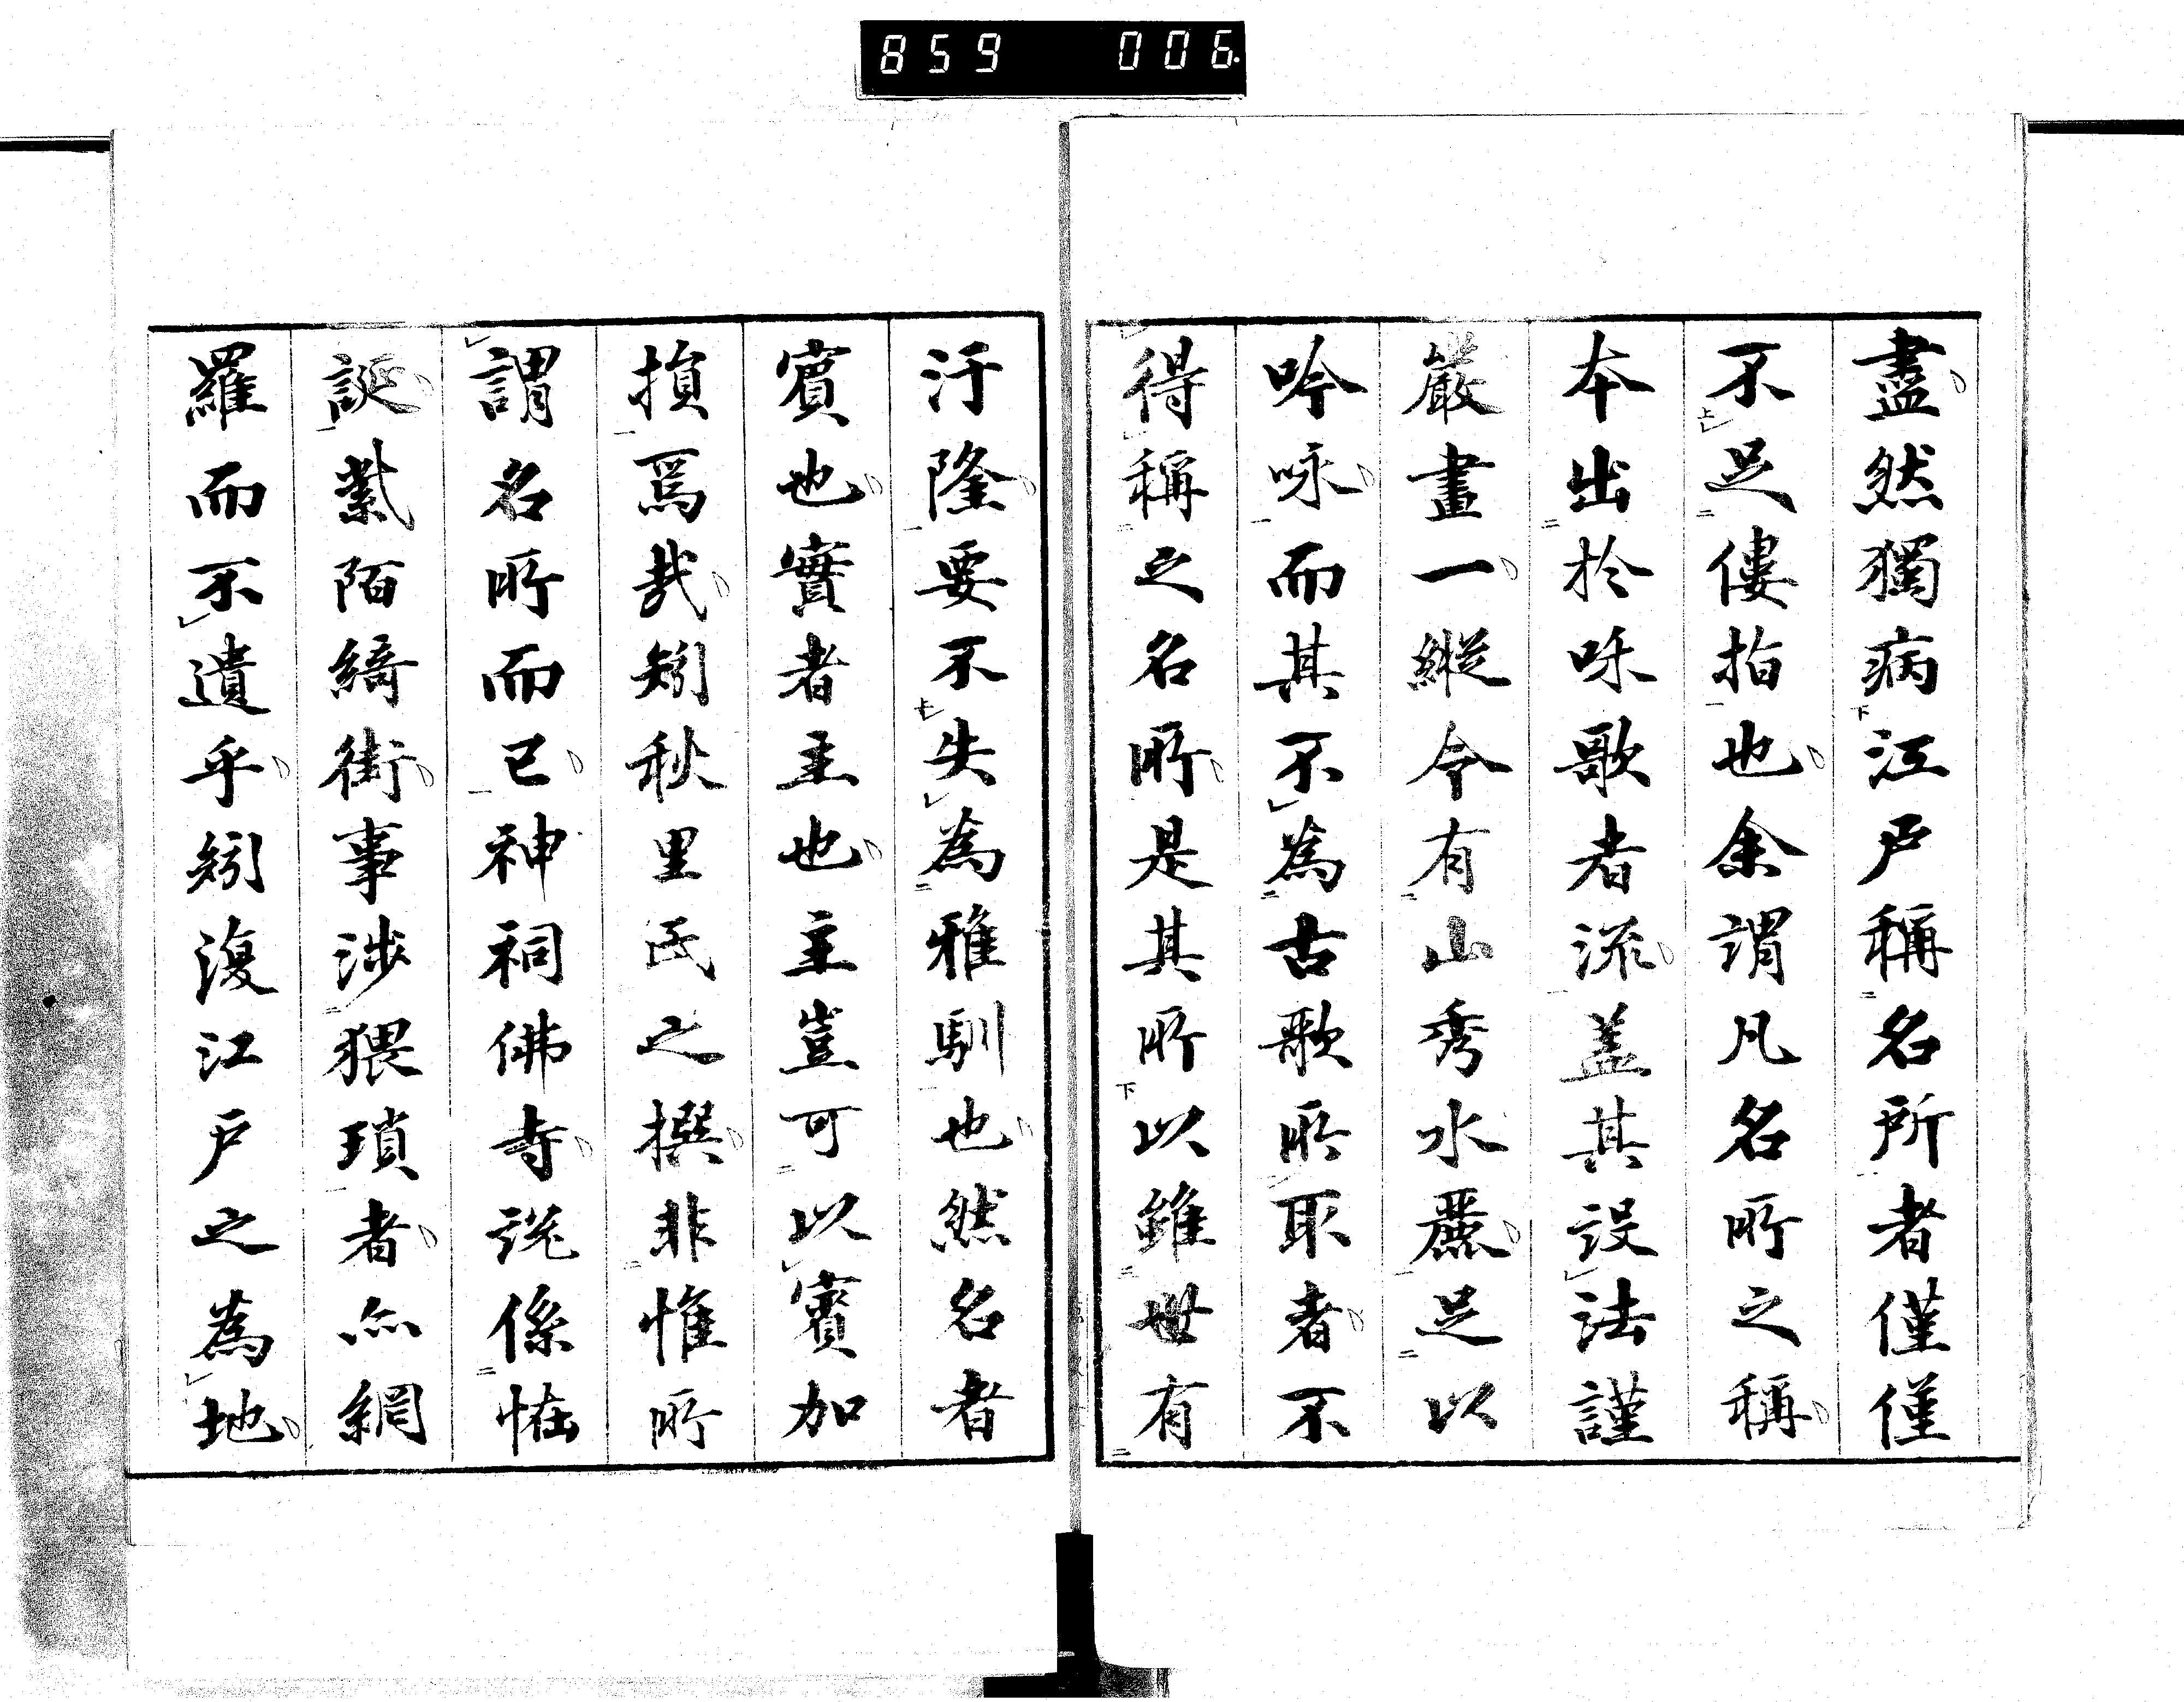 859 006.
盡然獨病江戸稱名所者僅僅
不足僂指也余謂凡名所之稱
本出於咏歌者流盖其設法謹
嚴畫一縱令有山秀水麗足以
吟咏而其不為古歌所取者不
得稱之名所是其所以雖世有
汙隆要不失為雅馴也然名者
賓也實者主也主豈可以賓加
損焉哉矧秋里氏之撰非惟所
謂名所而已神祠佛寺説係恠
誕紫陌綺街事涉猥瑣者亦網
羅而不遺乎矧復江戸之為地